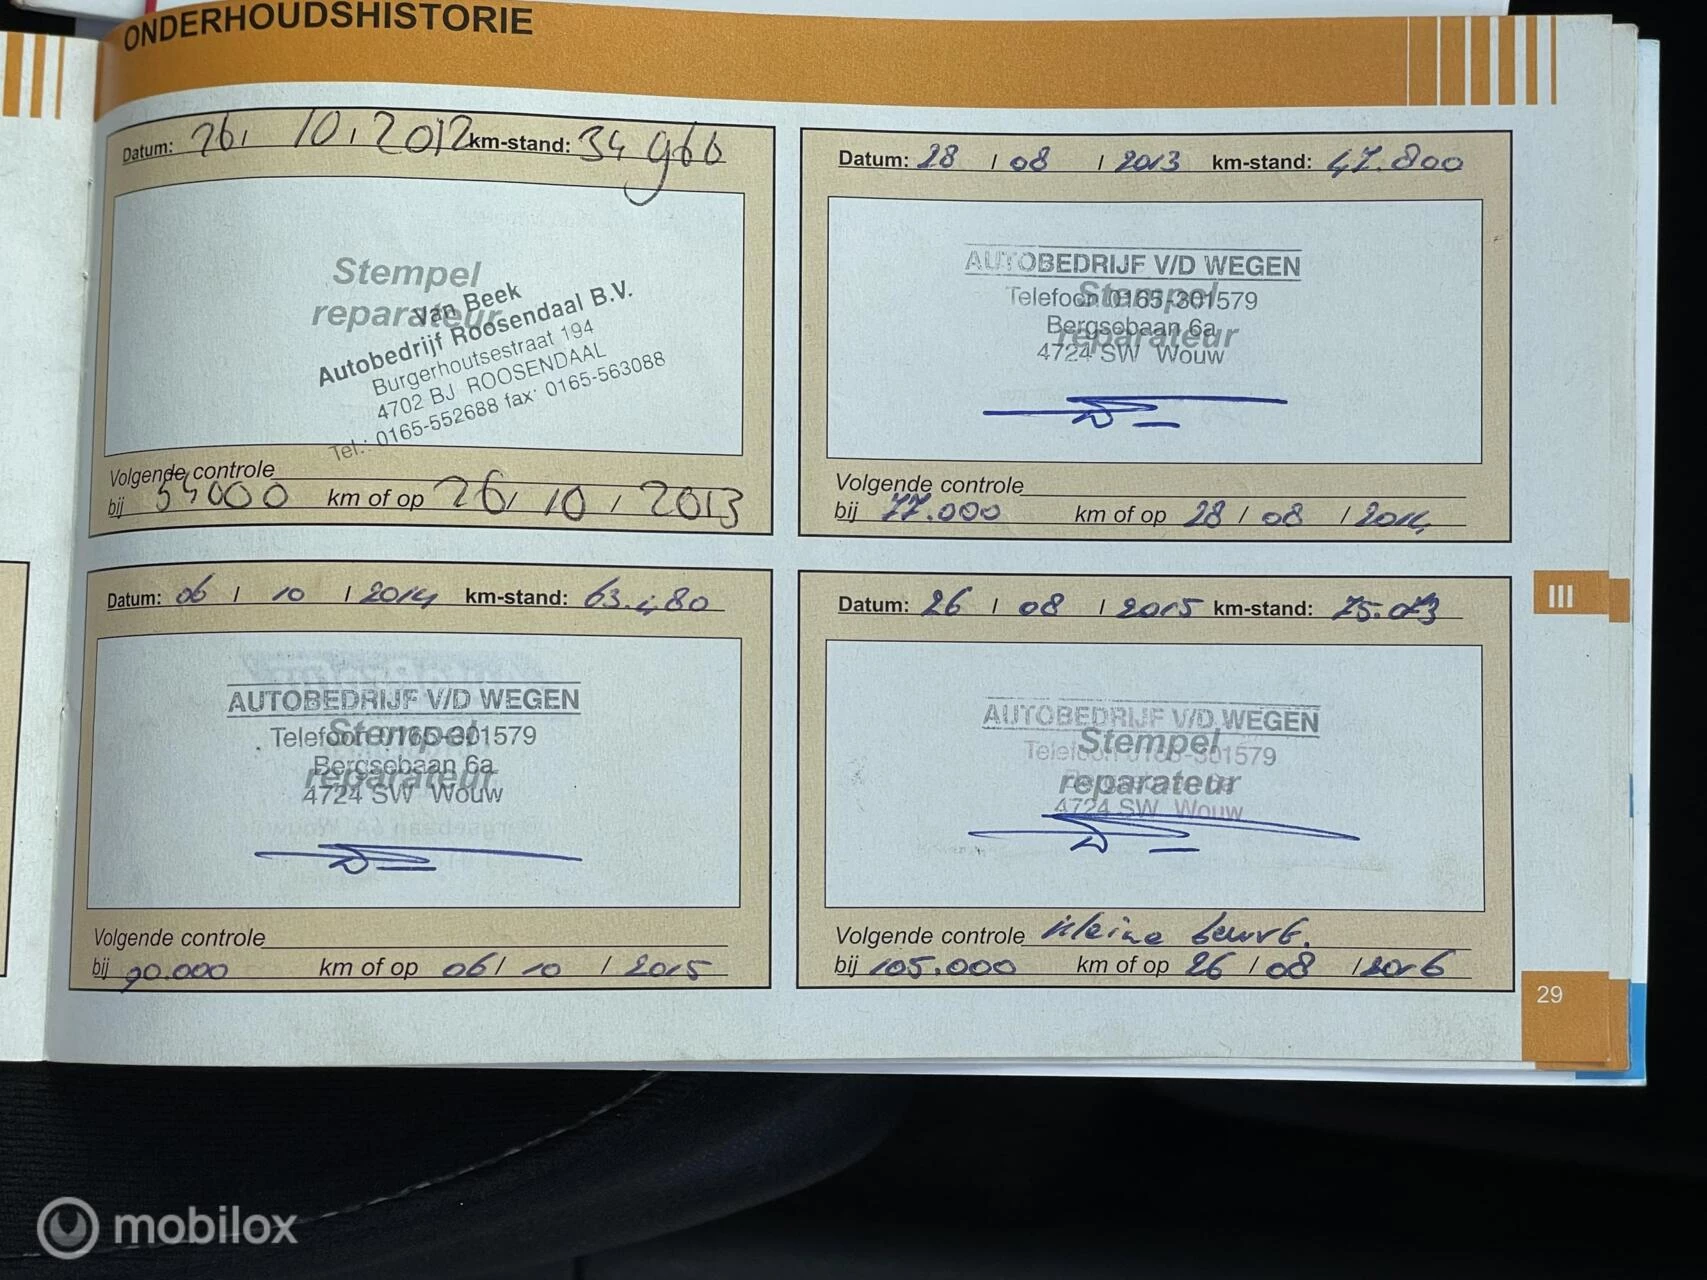 ONDERHOUDSHISTORIE
Datum: 26, 10, 2012 km-stand: 34960
Stempel
reparateur
Van Beek
Autobedrijf Roosendaal B.V.
Burgerhoutsestraat 194
4702 BJ ROOSENDAAL
Tel.: 0165-552688 fax: 0165-563088
Volgende controle
bij 54000 km of op 26/ 10 / 2013
Datum: 28 / 08 / 2013 km-stand: 47.800
AUTOBEDRIJF V/D WEGEN
Telefoon 0165-301579
Stempel
Bergsebaan 6a
reparateur
4724 SW Wouw
Volgende controle
bij 77.000 km of op 28 / 08 / 2014
Datum: 06 / 10 / 2014 km-stand: 63.480
AUTOBEDRIJF V/D WEGEN
Stempel
Telefoon 0165-301579
Bergsebaan 6a
reparateur
4724 SW Wouw
Volgende controle
bij 90.000 km of op 06 / 10 / 2015
Datum: 26 / 08 / 2015 km-stand: 75.073
AUTOBEDRIJF V/D WEGEN
Stempel
Telefoon 0165-301579
reparateur
4724 SW Wouw
Volgende controle kleine beurt.
bij 105.000 km of op 26 / 08 / 2016
III
29
mobilox